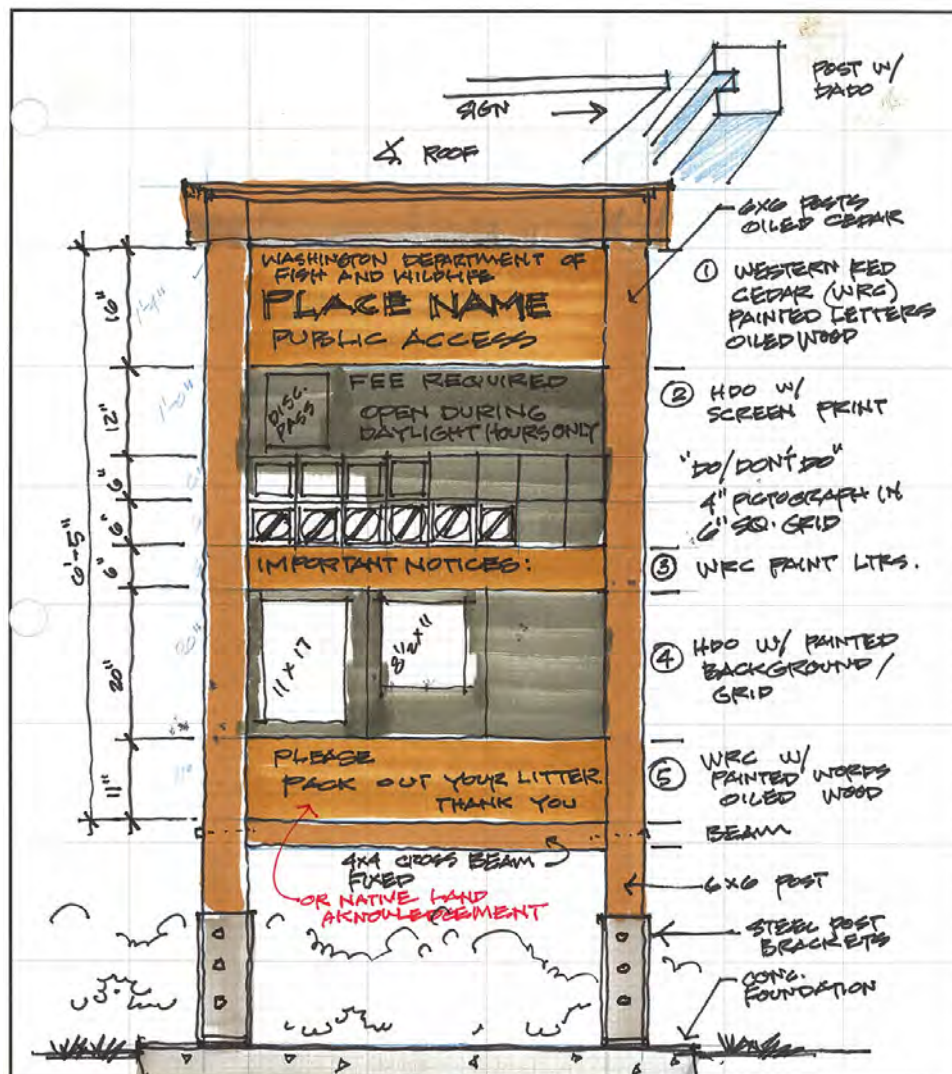 POST W/
DADO
SIGN
ROOF
6X6 POSTS
OILED CEDAR
WASHINGTON DEPARTMENT OF
FISH AND WILDLIFE
PLACE NAME
PUBLIC ACCESS
① WESTERN RED
CEDAR (WRC)
PAINTED LETTERS
OILED WOOD
16"
1'-4"
DISC.
PASS
FEE REQUIRED
OPEN DURING
DAYLIGHT HOURS ONLY
② HDO W/
SCREEN PRINT
12"
1'-0"
"DO/DON'T DO"
4" PICTOGRAPH IN
6" SQ. GRID
6"
6"
6'-5"
6"
IMPORTANT NOTICES:
③ WRC PAINT LTRS.
11 X 17
8½ X 11
④ HDO W/ PAINTED
BACKGROUND/
GRID
20"
20"
PLEASE
PACK OUT YOUR LITTER.
THANK YOU
⑤ WRC W/
PAINTED WORDS
OILED WOOD
11"
11"
BEAM
4X4 CROSS BEAM
FIXED
OR NATIVE LAND
AKNOWLEDGEMENT
6X6 POST
STEEL POST
BRACKETS
CONC.
FOUNDATION